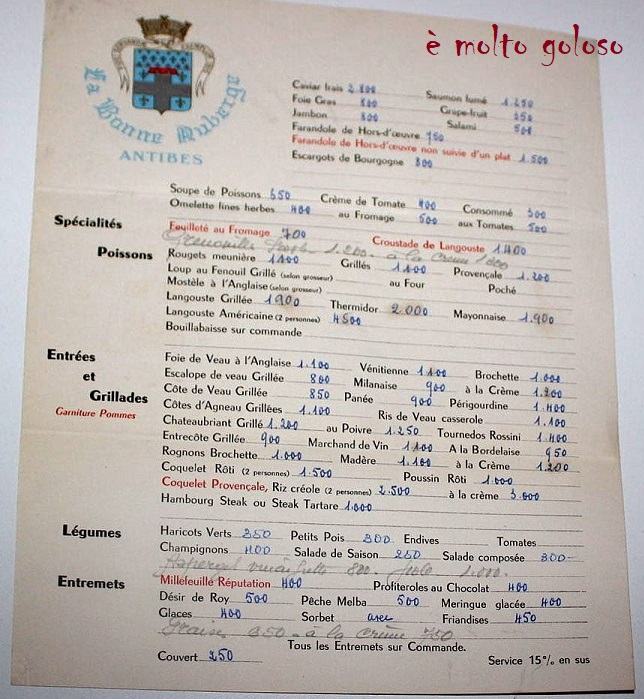 è molto goloso
La Bonne Auberge
ANTIBES
Caviar frais 2.800 Saumon fumé 1.250
Foie Gras 800 Grape-fruit 250
Jambon 800 Salami 500
Farandole de Hors-d'œuvre 750
Farandole de Hors-d'œuvre non suivie d'un plat 1.500
Escargots de Bourgogne 300
Soupe de Poissons 650 Crème de Tomate 400 Consommé 300
Omelette fines herbes 400 au Fromage 500 aux Tomates 500
Spécialités
Feuilleté au Fromage 700 Croustade de Langouste 1.400
Grenouilles 1.200 - à la crème
Poissons
Rougets meunière 1.100 Grillés 1.100 Provençale 1.200
Loup au Fenouil Grillé (selon grosseur) au Four Poché
Mostèle à l'Anglaise (selon grosseur)
Langouste Grillée 1.900 Thermidor 2.000 Mayonnaise 1.900
Langouste Américaine (2 personnes) 4500
Bouillabaisse sur commande
Entrées
et
Grillades
Garniture Pommes
Foie de Veau à l'Anglaise 1.100 Vénitienne 1.100 Brochette 1.000
Escalope de veau Grillée 800 Milanaise 900 à la Crème 1.200
Côte de Veau Grillée 850 Panée 900 Périgourdine 1.400
Côtes d'Agneau Grillées 1.100 Ris de Veau casserole 1.100
Chateaubriant Grillé 1.200 au Poivre 1.250 Tournedos Rossini 1.400
Entrecôte Grillée 900 Marchand de Vin 1.100 A la Bordelaise 950
Rognons Brochette 1.000 Madère 1.100 à la Crème 1.200
Coquelet Rôti (2 personnes) 1.500 Poussin Rôti 1.000
Coquelet Provençale, Riz créole (2 personnes) 2.500 à la crème 3.000
Hambourg Steak ou Steak Tartare 1.000
Légumes
Haricots Verts 350 Petits Pois 300 Endives Tomates
Champignons 400 Salade de Saison 250 Salade composée 300-
800 - 1.000-
Entremets
Millefeuille Réputation 400 Profiteroles au Chocolat 400
Désir de Roy 500 Pêche Melba 500 Meringue glacée 400
Glaces 400 Sorbet avec Friandises 450
650 - à la crème 750
Tous les Entremets sur Commande.
Couvert 250 Service 15% en sus